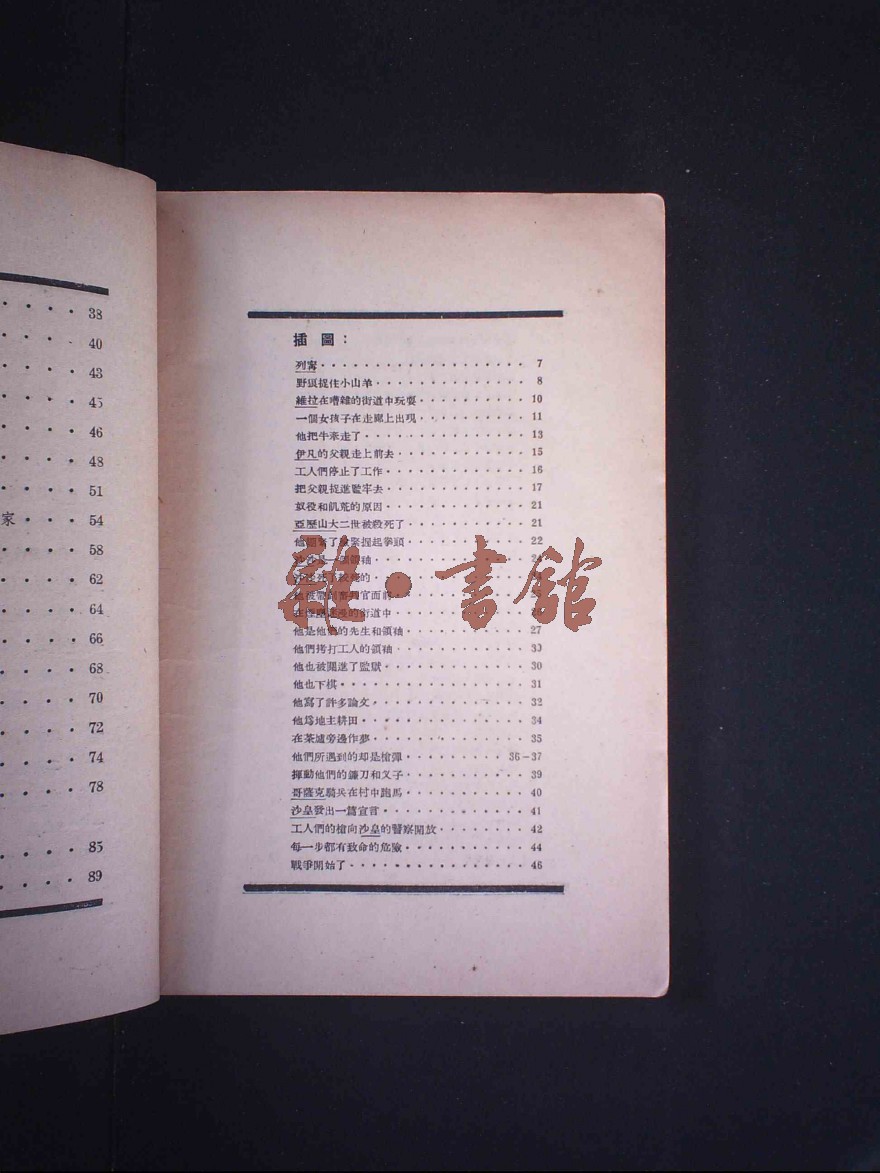 38
40
43
45
46
48
51
家 · · · 54
58
62
64
66
68
70
72
74
78
85
89
插圖：
列寗 · · · 7
野狼捉住小山羊 · · · 8
維拉在嘈雜的街道中玩耍 · · · 10
一個女孩子在走廊上出現 · · · 11
他把牛牽走了 · · · 13
伊凡的父親走上前去 · · · 15
工人們停止了工作 · · · 16
把父親捉進監牢去 · · · 17
奴役和飢荒的原因 · · · 21
亞歷山大二世被殺死了 · · · 21
了 緊握起拳頭 · · · 22
沙沙是一個領袖
的
他被 審判官面前
在 的街道中
他是他們的先生和領袖 · · · 27
他們拷打工人的領袖 · · · 30
他也被關進了監獄 · · · 30
他也下棋 · · · 31
他寫了許多論文 · · · 32
他爲地主耕田 · · · 34
在茶爐旁邊作夢 · · · 35
他們所遇到的却是槍彈 · · · 36－37
揮動他們的鐮刀和叉子 · · · 39
哥薩克騎兵在村中跑馬 · · · 40
沙皇發出一篇宣言 · · · 41
工人們的槍向沙皇的警察開放 · · · 42
每一步都有致命的危險 · · · 44
戰爭開始了 · · · 46
雜·書館